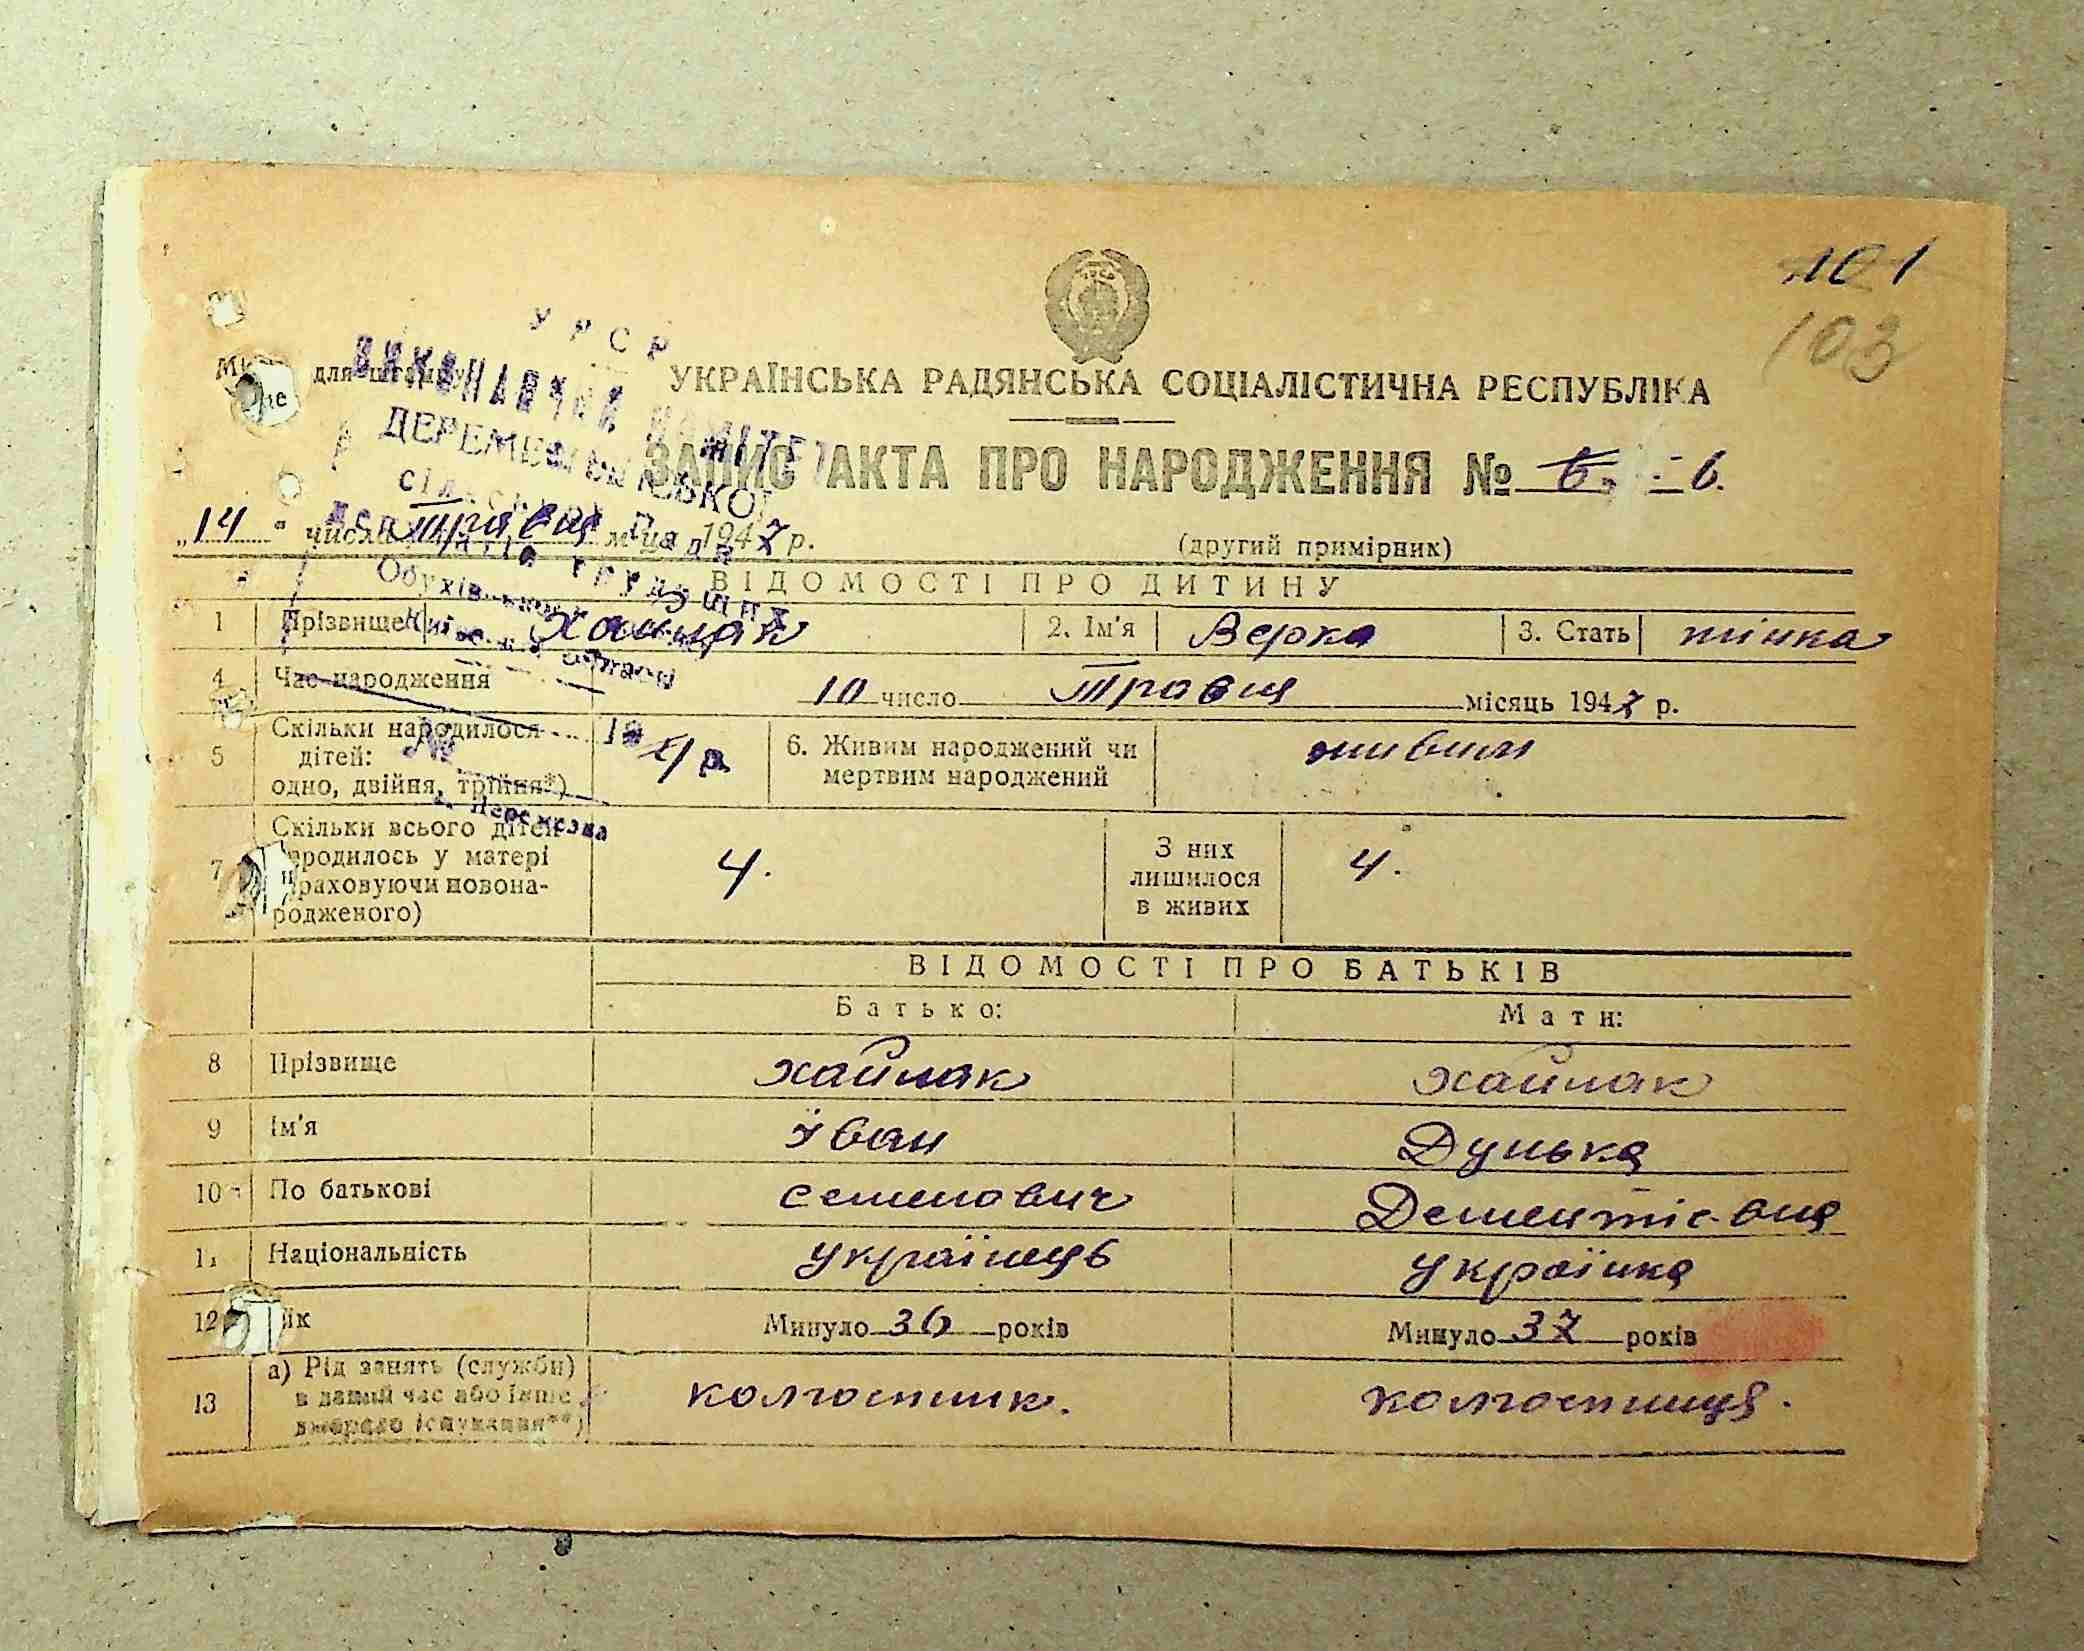 101
103
УРСР
ВИКОНАВЧИЙ КОМІТЕТ
для штампу
УКРАЇНСЬКА РАДЯНСЬКА СОЦІАЛІСТИЧНА РЕСПУБЛІКА
ЗАПИС АКТА ПРО НАРОДЖЕННЯ № 6. - 6.
„14" число Травня м-ця 1947 р.
(другий примірник)
Обухівського
Київської області
ВІДОМОСТІ ПРО ДИТИНУ
1 Прізвище Хайлак 2. Ім'я Верка 3. Стать жінка
4 Час народження 10 число Травня місяць 1947 р.
5 Скільки народилося дітей: одно, двійня, трійня*) 6. Живим народжений чи мертвим народжений живим
№ 19
7 Скільки всього дітей народилось у матері (враховуючи новонародженого) 4. З них лишилося в живих 4.
ВІДОМОСТІ ПРО БАТЬКІВ
Батько: Мати:
8 Прізвище Хайлак Хайлак
9 Ім'я Іван Дунька
10 По батькові Семенович Дементієвна
11 Національність українець українка
12 Вік Минуло 36 років Минуло 37 років
13 а) Рід занять (служби) в даний час або інше джерело існування**) колгоспник. колгоспниця.